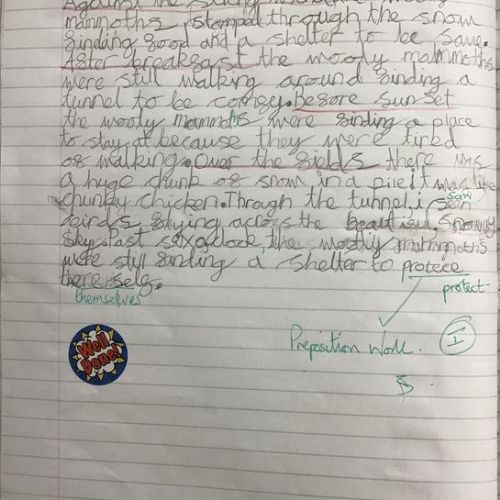 Against the
mammoths stomped through the snow
finding food and a shelter to be save.
After breakfast the wooly malmoths
were still walking around finding a
tunnel to be comfey. Before sun set
the wooly mammoths were finding a place
to stay at because they were tired
of walking. Over the fields there was
a huge chunk of snow in a pile it was like
chunky chicken. Through the tunnel, i seen
saw
birds flying across the beautifu, snowy
sky. Past six o,clock, the woolly mammoths
were still finding a shelter to protece
there self.
themselves
protect
Preposition Work. I
Well Done!